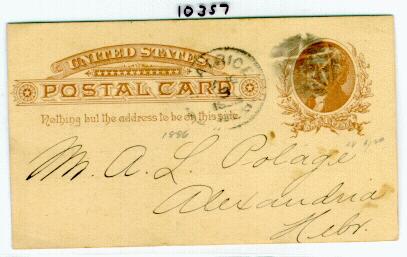 10357
UNITED STATES
POSTAL CARD
Nothing but the address to be on this side.
1886
Mr. A. L. Polage
Alexandria
Nebr.